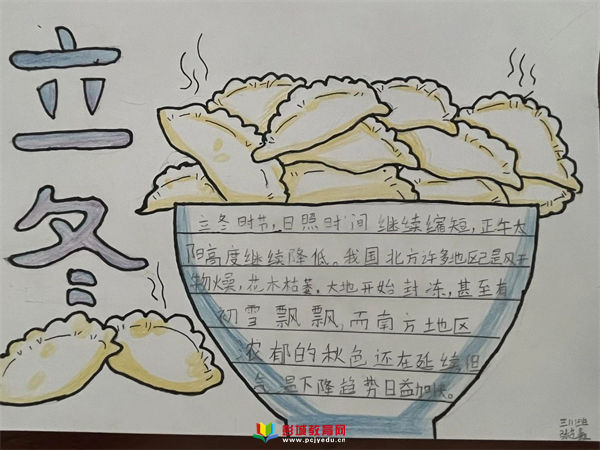 立冬
立冬时节，日照时间继续缩短，正午太
阳高度继续降低。我国北方许多地区已是风干
物燥，花木枯萎。大地开始封冻，甚至有
初雪飘飘，而南方地区
浓郁的秋色还在延续但
气温下降趋势日益加快。
彭城教育网
www.pcjyedu.cn